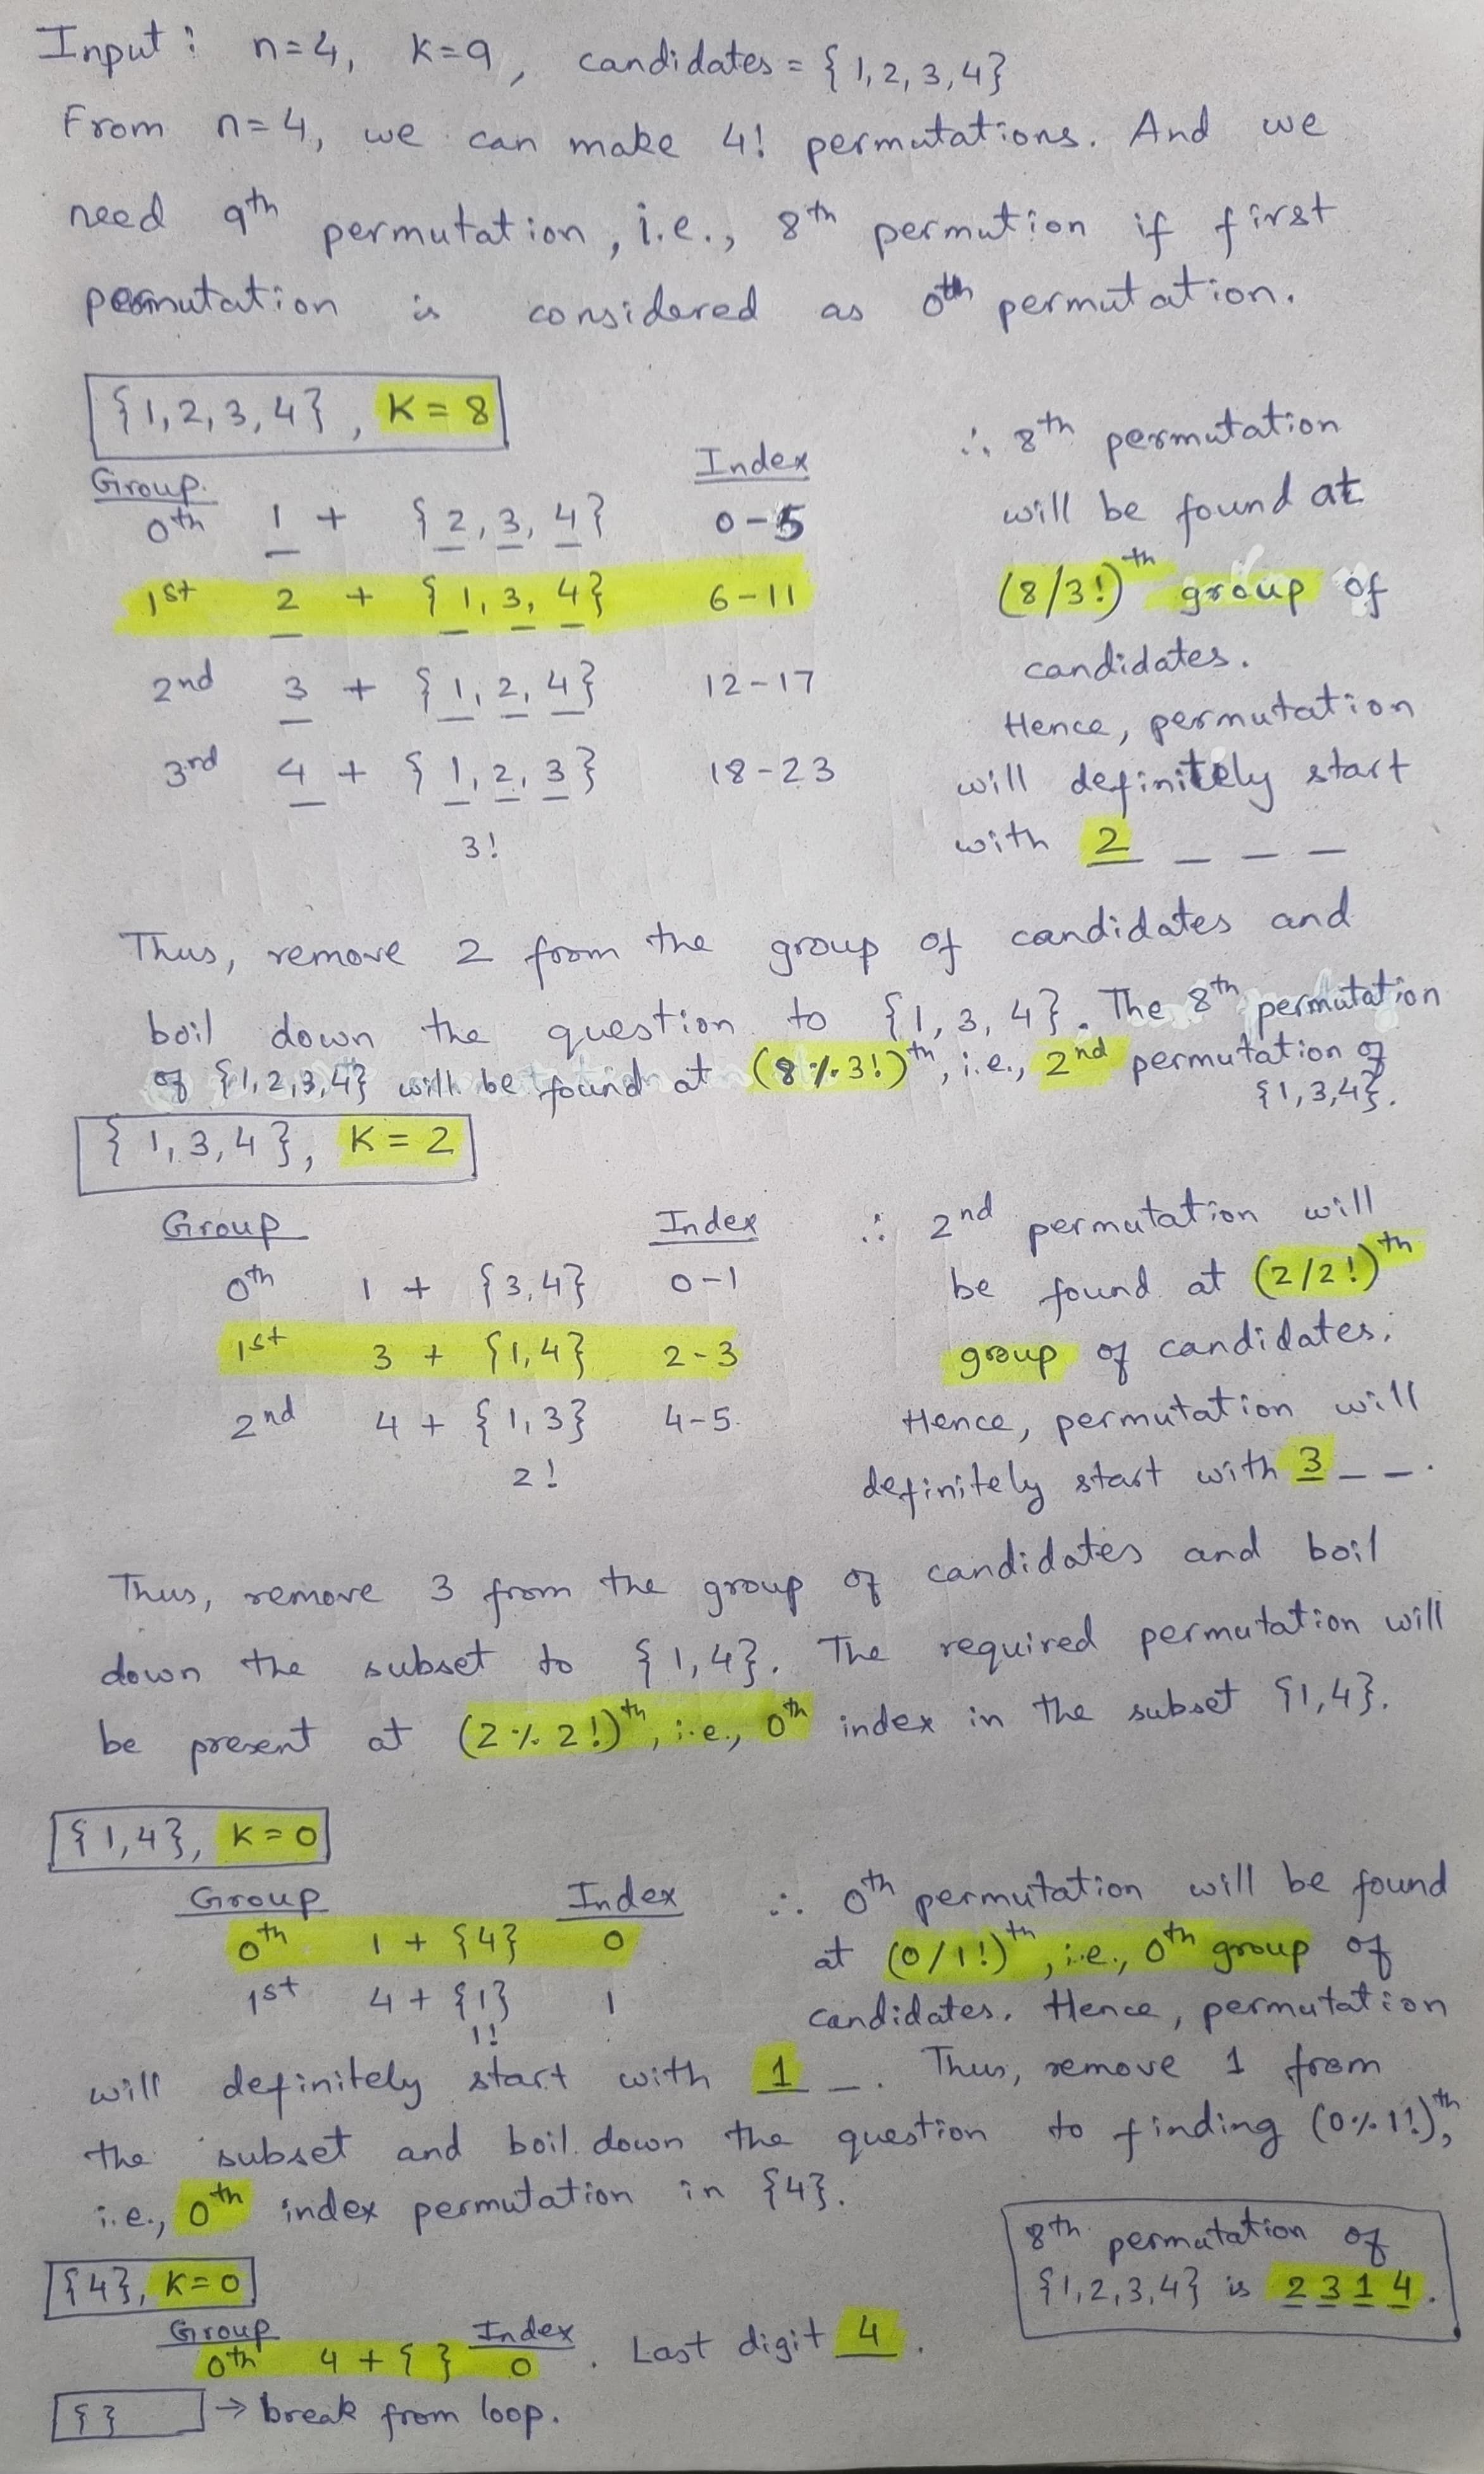 Input: n=4, K=9, candidates = {1,2,3,4}
From n=4, we can make 4! permutations. And we
need 9th permutation, i.e., 8th permution if first
permutation is considered as 0th permutation.
{1,2,3,4}, K=8
Group Index
0th 1 + {2,3,4} 0-5
1st 2 + {1,3,4} 6-11
2nd 3 + {1,2,4} 12-17
3rd 4 + {1,2,3} 18-23
3!
∴ 8th permutation
will be found at
(8/3!)th group of
candidates.
Hence, permutation
will definitely start
with 2 _ _ _
Thus, remove 2 from the group of candidates and
boil down the question to {1,3,4}. The 8th permutation
of {1,2,3,4} will be found at (8%3!)th, i.e., 2nd permutation of
{1,3,4}.
{1,3,4}, K=2
Group Index
0th 1 + {3,4} 0-1
1st 3 + {1,4} 2-3
2nd 4 + {1,3} 4-5
2!
∴ 2nd permutation will
be found at (2/2!)th
group of candidates.
Hence, permutation will
definitely start with 3 _ _.
Thus, remove 3 from the group of candidates and boil
down the subset to {1,4}. The required permutation will
be present at (2%2!)th, i.e., 0th index in the subset {1,4}.
{1,4}, K=0
Group Index
0th 1 + {4} 0
1st 4 + {1} 1
1!
∴ 0th permutation will be found
at (0/1!)th, i.e., 0th group of
candidates. Hence, permutation
will definitely start with 1 _. Thus, remove 1 from
the subset and boil down the question to finding (0%1!)th,
i.e., 0th index permutation in {4}.
{4}, K=0
Group Index
0th 4 + { } 0. Last digit 4.
{} → break from loop.
8th permutation of
{1,2,3,4} is 2 3 1 4.